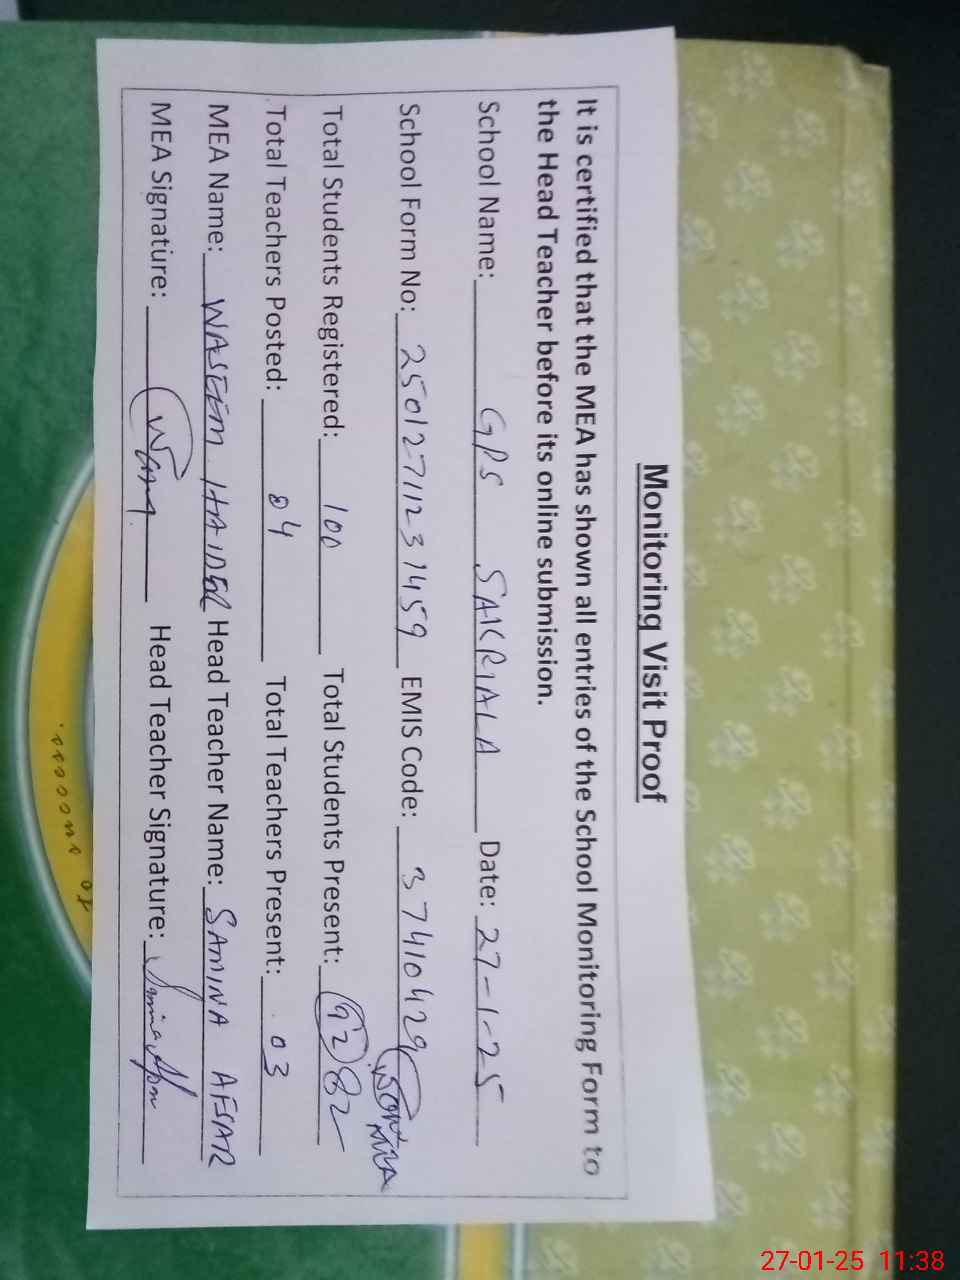 Monitoring Visit Proof
It is certified that the MEA has shown all entries of the School Monitoring Form to
the Head Teacher before its online submission.
School Name: GPS SAKRIALA Date: 27-1-25
School Form No: 25012711231459 EMIS Code: 37410429
Total Students Registered: 100 Total Students Present: 92 82
Total Teachers Posted: 04 Total Teachers Present: 03
MEA Name: WASEEM HAIDER Head Teacher Name: SAMINA AFSAR
MEA Signature: Head Teacher Signature:
27-01-25 11:38